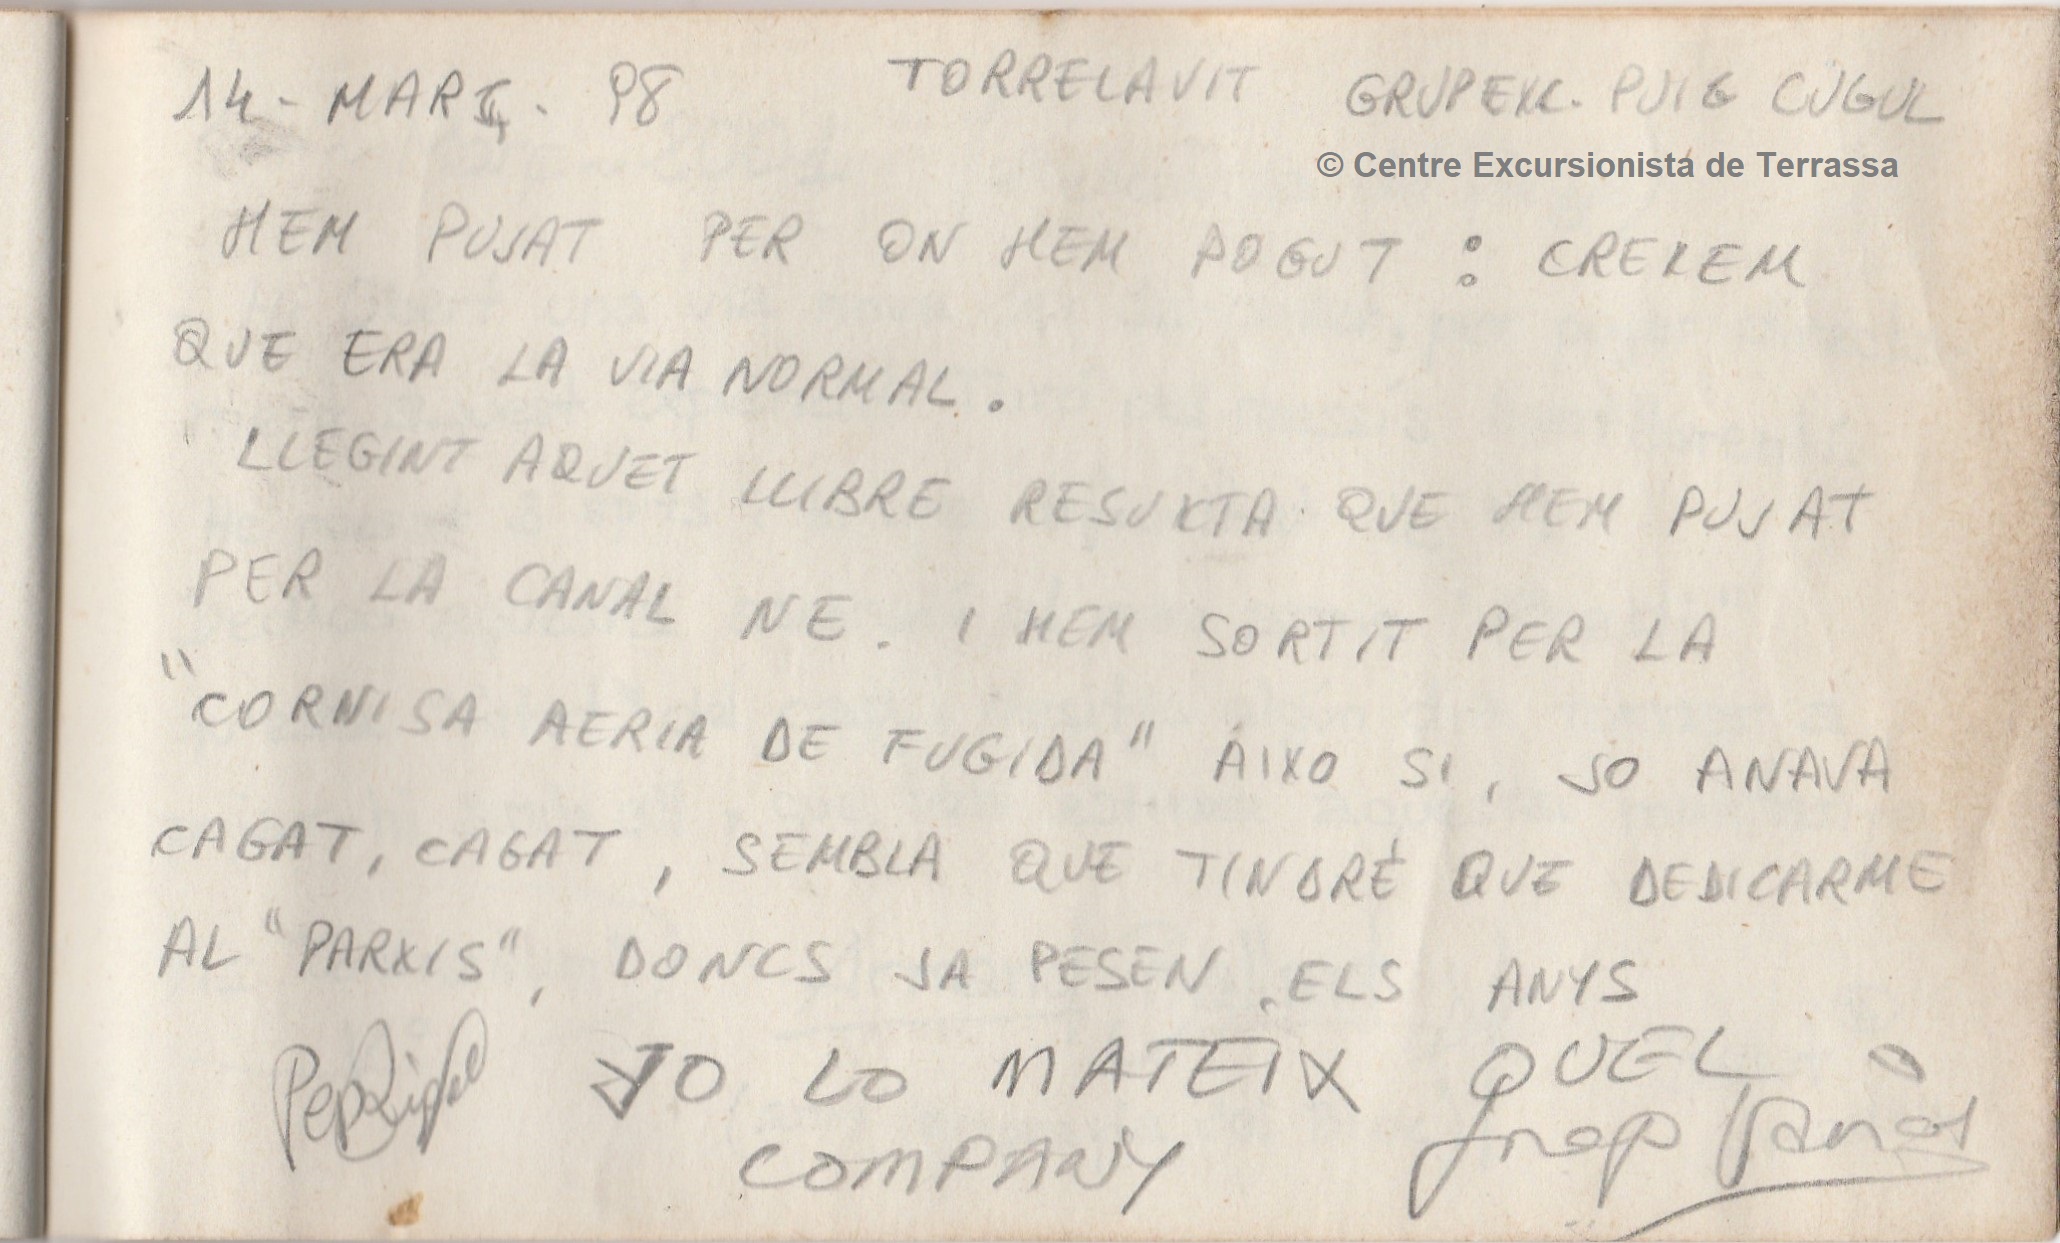 14 - MARÇ - 98 TORRELAVIT GRUP EXC. PUIG CUGUL
© Centre Excursionista de Terrassa
HEM PUJAT PER ON HEM POGUT : CREKEM
QUE ERA LA VIA NORMAL.
LLEGINT AQUET LLIBRE RESULTA QUE HEM PUJAT
PER LA CANAL NE. I HEM SORTIT PER LA
"CORNISA AERIA DE FUGIDA" AIXO SI, JO ANAVA
CAGAT, CAGAT, SEMBLA QUE TINDRÉ QUE DEDICARME
AL "PARXIS", DONCS JA PESEN ELS ANYS
JO LO MATEIX QUEL
COMPANY